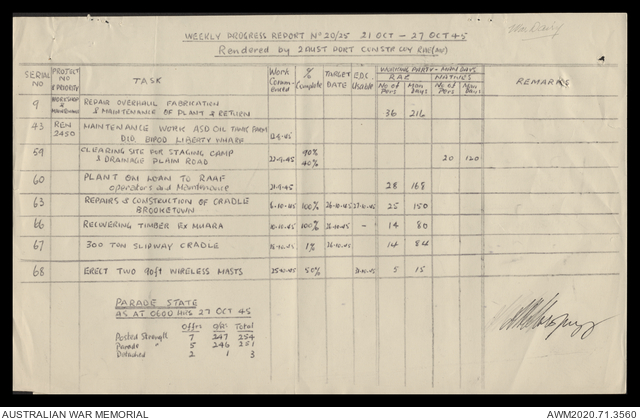 WEEKLY PROGRESS REPORT Nº 20/25 21 OCT - 27 OCT 45
Rendered by 2 AUST PORT CONSTR COY RAE (AIF)
SERIAL NO PROJECT NO & PRIORITY TASK Work Commenced % Complete TARGET DATE E.D.C. Usable WORKING PARTY - MAN DAYS REMARKS
RAE NATIVES
No of Pers Man Days No of Pers Man Days
9 WORKSHOP & MAINTENANCE REPAIR OVERHAUL FABRICATION
& MAINTENANCE OF PLANT & RETURN 36 216
43 REN 2450 MAINTENANCE WORK ASD OIL TANK FARM
DID. BIPOD LIBERTY WHARF
59 CLEARING SITE FOR STAGING CAMP 90%
& DRAINAGE PLAIN ROAD 22-9-45 40% 20 120
60 PLANT ON LOAN TO RAAF
operators and Maintenance 21-9-45 28 168
63 REPAIRS & CONSTRUCTION OF CRADLE 100% 26-10-45 27-10-45 25 150
BROOKETOWN
66 RECOVERING TIMBER EX MUARA 10-10-45 100% 26-10-45 - 14 80
67 300 TON SLIPWAY CRADLE 15-10-45 1% 26-10-45 14 84
68 ERECT TWO 90ft WIRELESS MASTS 25-10-45 50% 31-10-45 5 15
PARADE STATE
AS AT 0600 HRS 27 OCT 45
Offrs O/Rs Total
Posted Strength 7 247 254
Parade " 5 246 251
Detached 2 1 3
AUSTRALIAN WAR MEMORIAL
AWM2020.71.3560